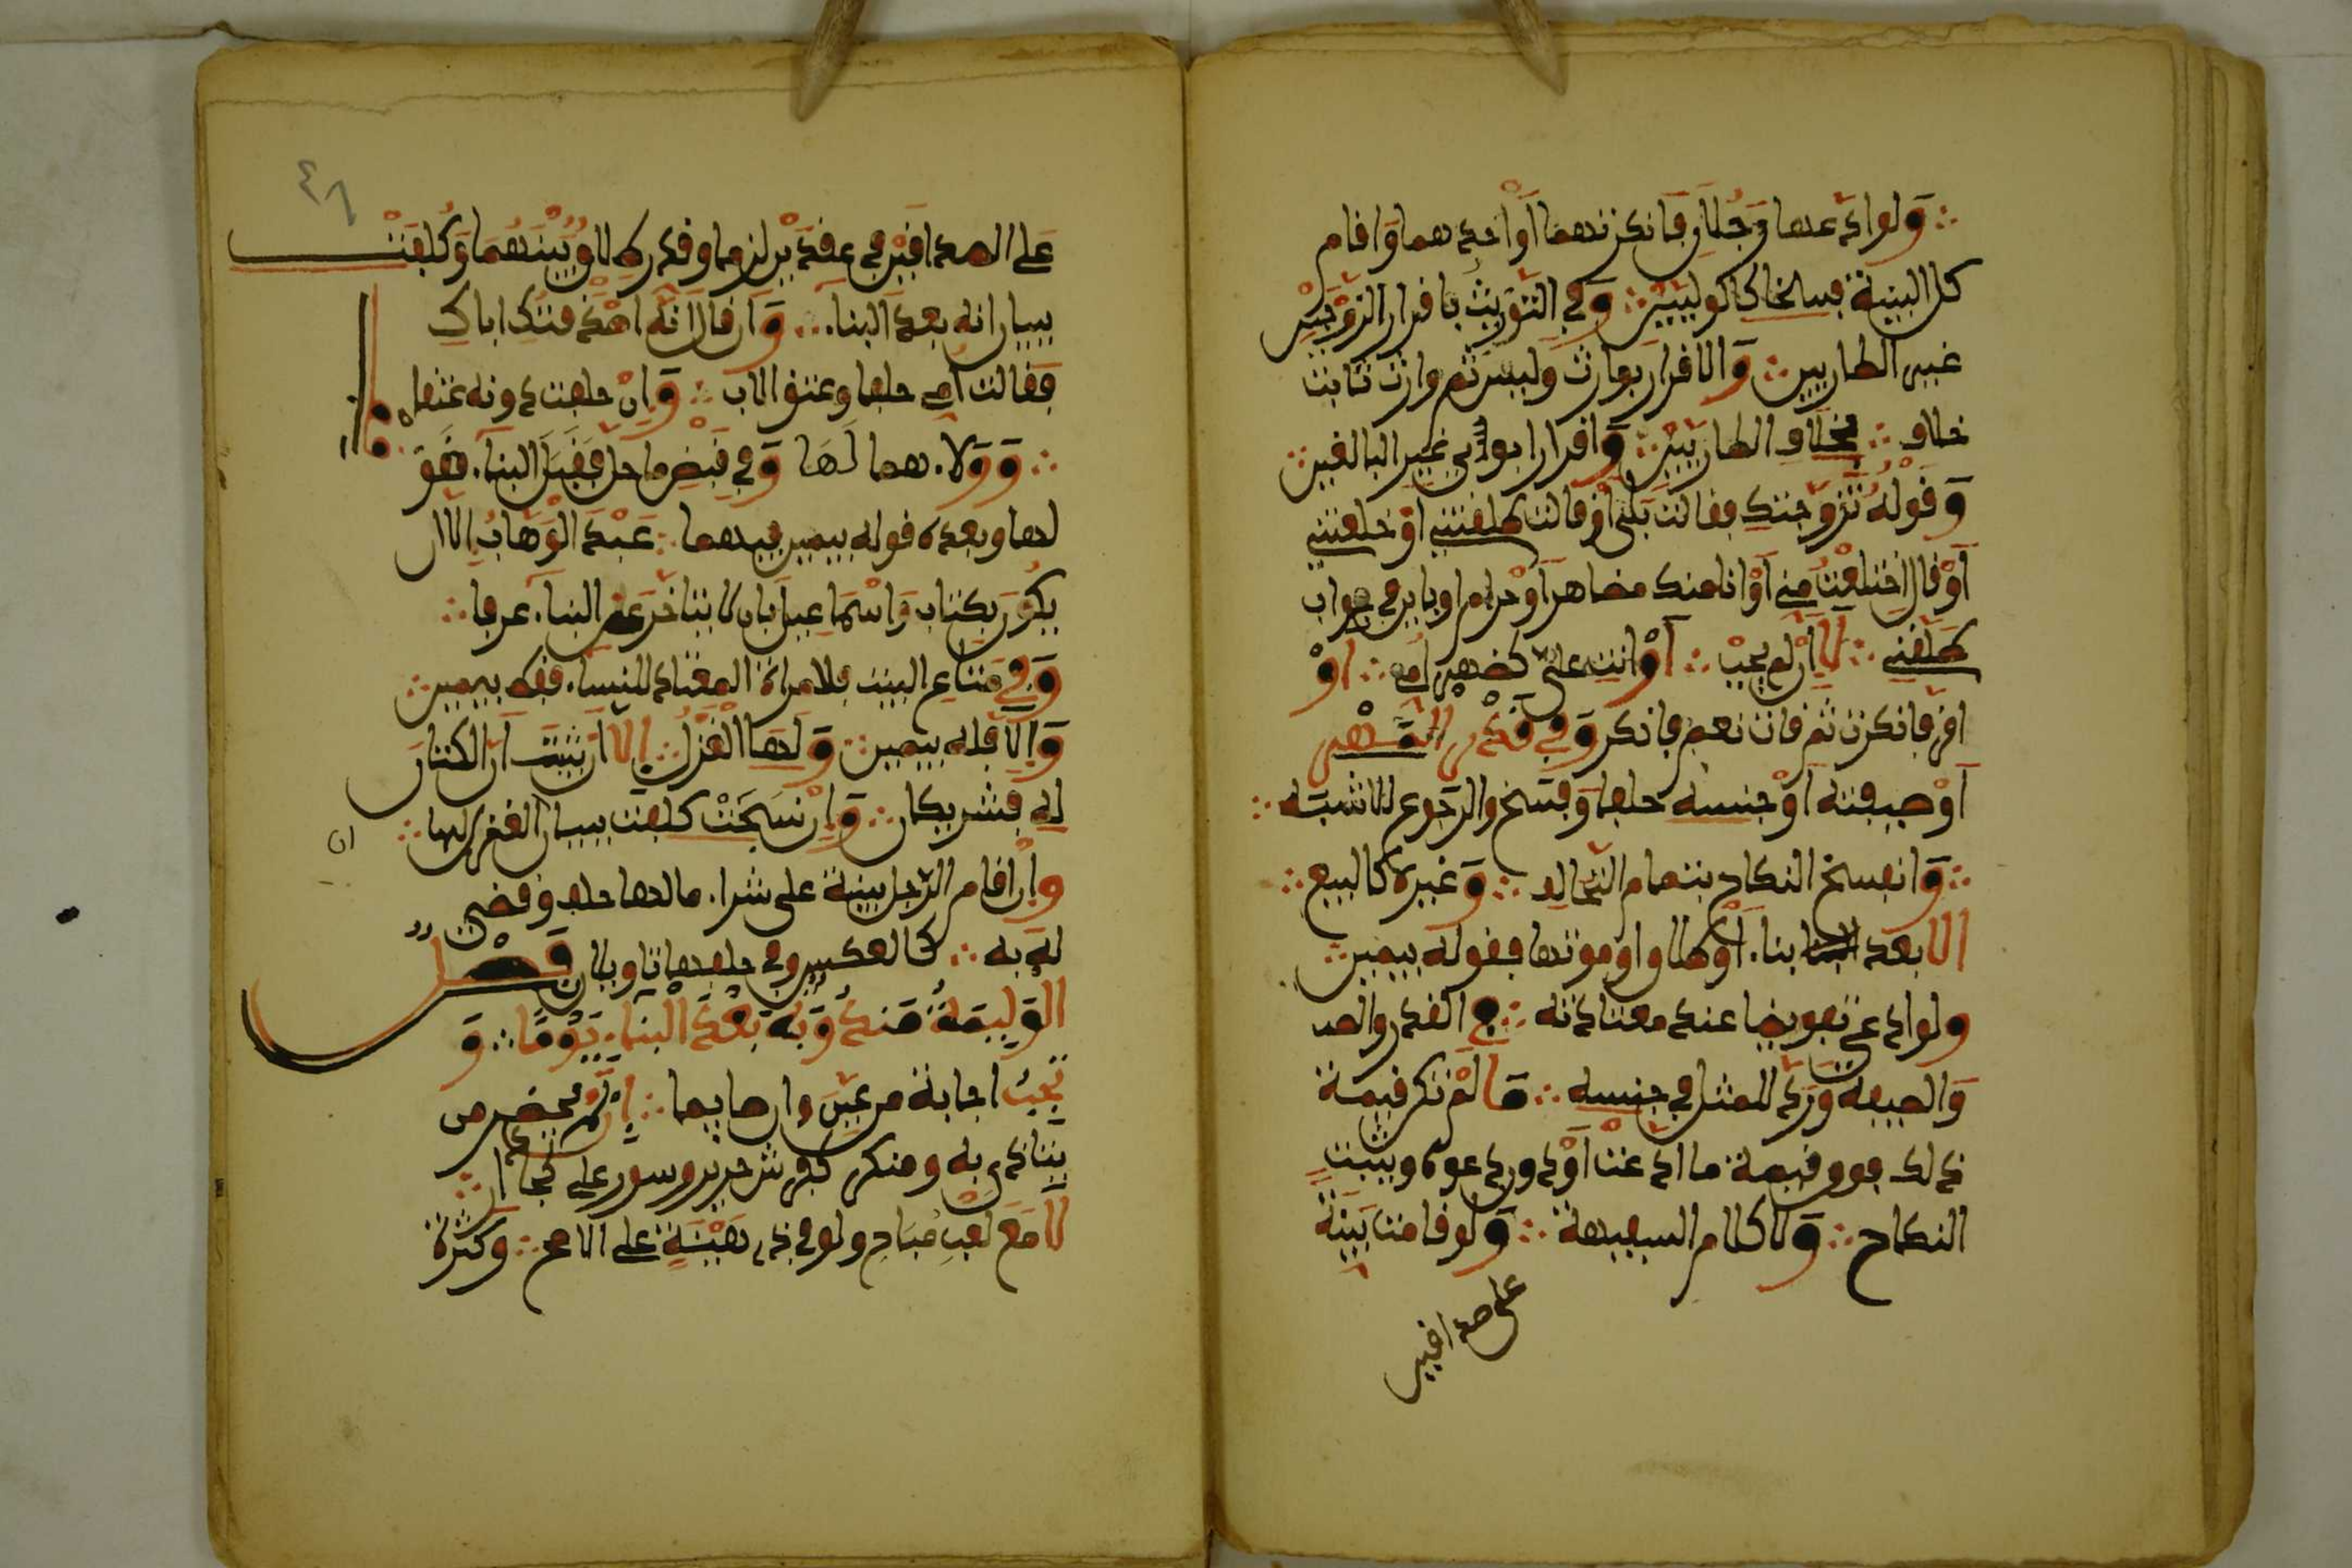 ولو ادعاها رجلان فانكرتهما او احدهما واقام
كل البينة فسخا كالوليين وفي التوريث باقرار الزوجين
غير الطاريين والاقرار بوارث وليس ثم وارث ثابت
خلاف بخلاف الطاريين واقرار ابوي غير البالغين
وقوله تزوجتك فقالت بلى او قالت طلقتني او خالعتني
او قال اختلعت مني او انا منك مظاهر او حرام او باين في جواب
طلقني لا ان لم يجب او انت علي كظهر امي او
اقر فانكرت ثم قالت نعم فانكر وفي قدر المهر
او صفته او جنسه حلفا وفسخ والرجوع للاشبه
وانفسخ النكاح بتمام التحالف وغيره كالبيع
الا بعد بناء او طلاق او موتها فقوله بيمين
ولو ادعى تفويضا عند معتاديه في القدر والصد
والصفة ورد للمثل في جنسه ما لم تكن قيمة
ذلك فوق قيمة ما ادعت او دون دعواه وثبت
النكاح ولا كلام السفيهة ولو قامت بينة
على صداقين
٤٦
على الصداقين في عقدين لزما وقدر طلاق بينهما وكلفت
ببيان انه بعد البناء وان قال انه اصدقتك اباك
فقالت امي حلفا وعتق الاب وان حلفت دونه عتقا
وولاءهما لها وفي قبض ما حل فقبل البناء فقو
لها وبعده قوله بيمين فيهما عبد الوهاب الا ان
يكون بكتاب واسماعيل بان لا يتاخر عن البناء عرفا
وفي متاع البيت فللمراة المعتاد للنساء فقط بيمين
والا فله بيمين ولها الغزل الا ان يثبت ان الكتان
له فشريكان وان نسجت كلفت ببيان الغزل لها
ان
وان اقام الرجل بينة على شراء مالها حلف وقضى
له به كالعكس وفي حلفها تاويلان فصل
الوليمة مندوبة بعد البناء يوما و
تجب اجابة من عين وان صايما ان لم يحضر من
يتاذى به ومنكر كفرش حرير وصور على كجدار
لا مع لعب مباح ولو في ذي هيئة على الاصح وكثرة